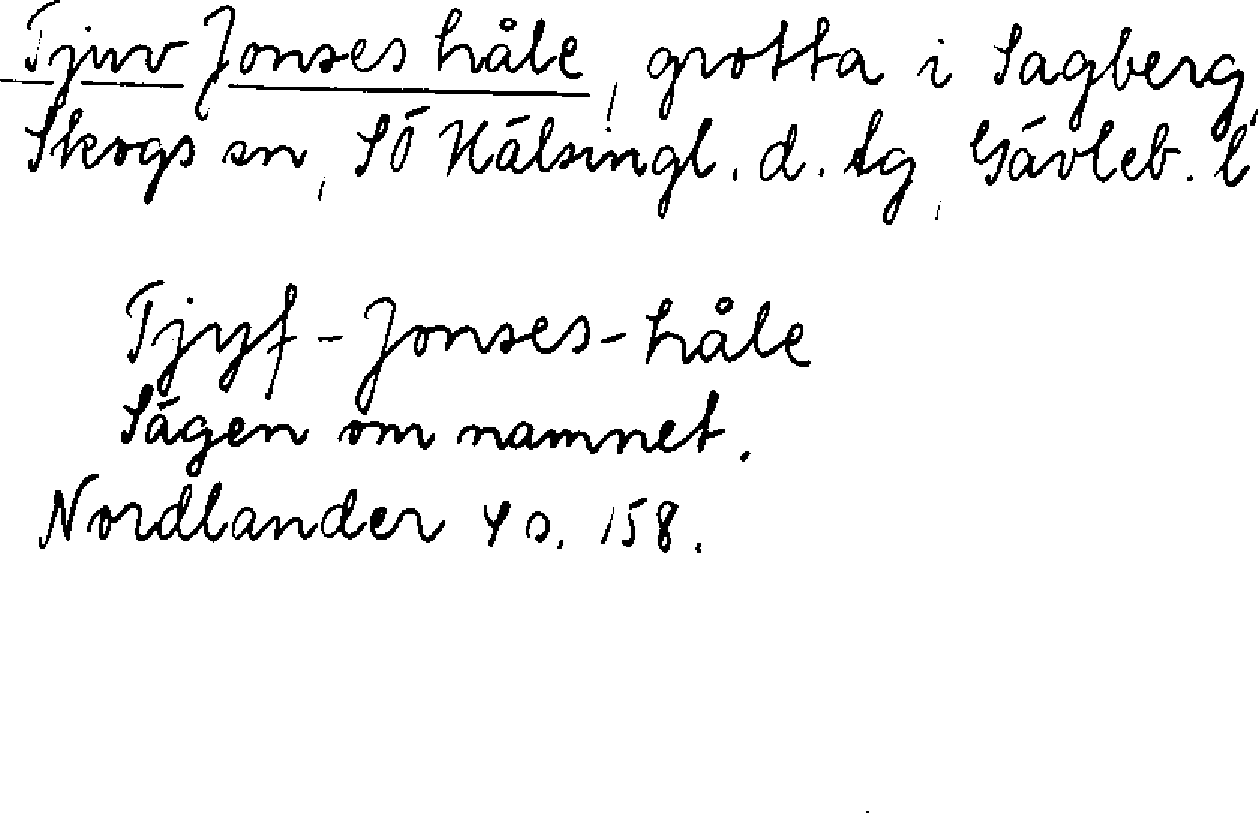 Tjuv Jonses håle, grotta i Sagberg,
Skogs sn, SÖ Hälsingl. d. tg, Gävleb. l
Tjyf-Jonses-håle
Sägen om namnet.
Nordlander 4 s. 158.